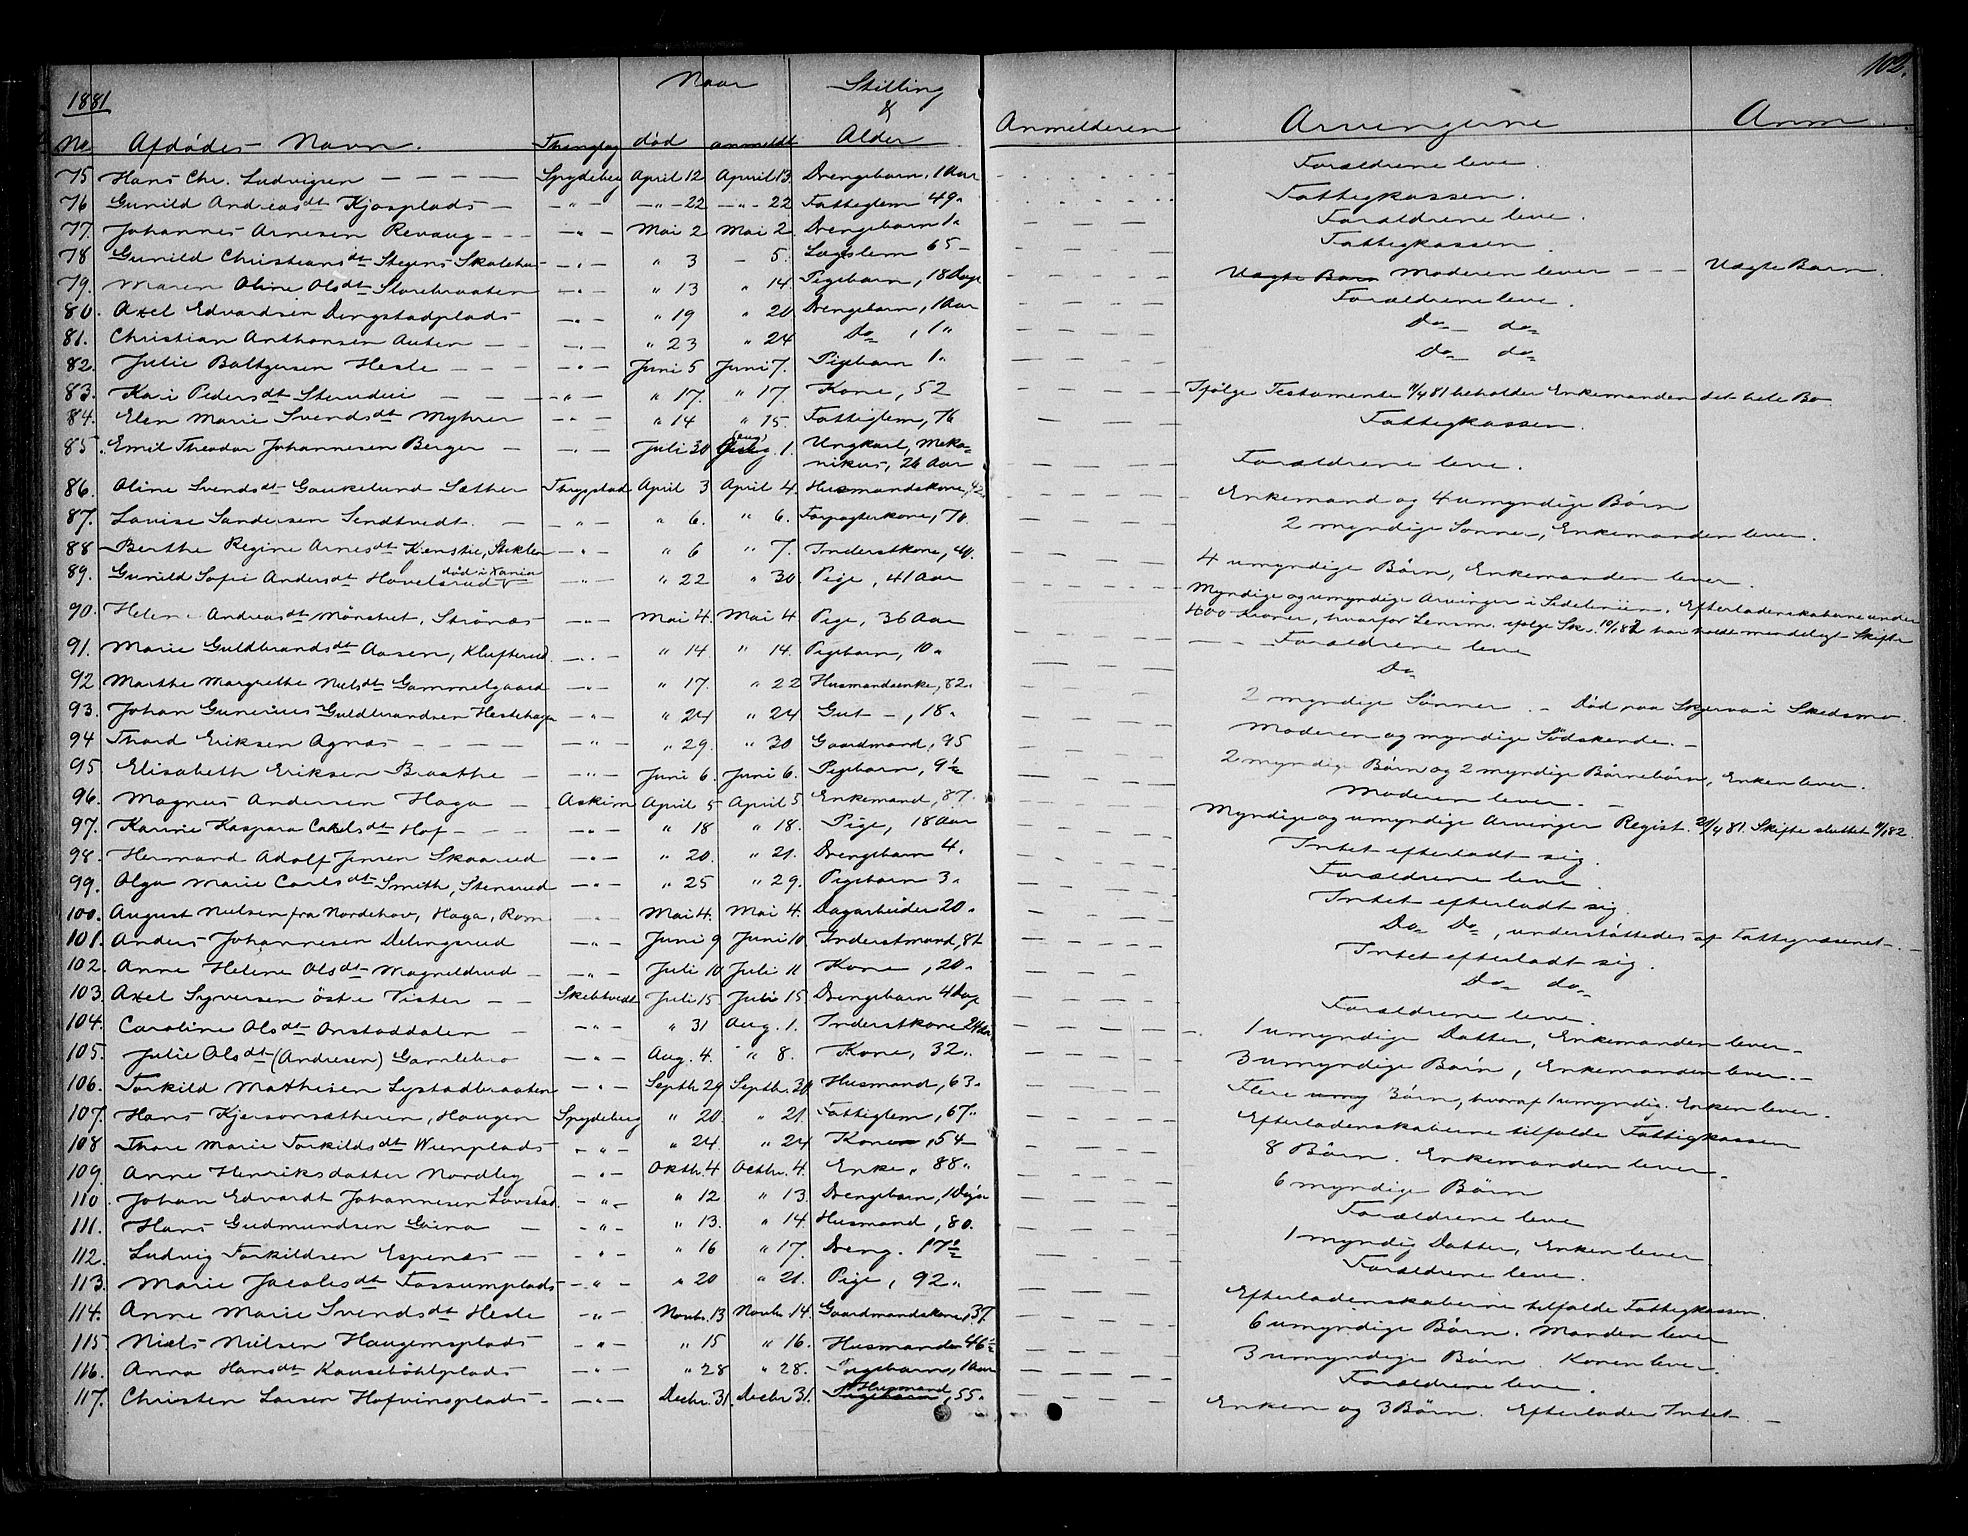 102.
1881 Naar Stilling
&
No. Afdødes Navn. Thinglag død anmeldt Alder Anmelderen Arvingerne Anm.
75 Hans Chr. Ludvigsen — — — — Spydeberg April 12 April 13. Drengebarn, 1 Aar Forældrene leve.
76 Gunild Andreasdt Kjosplads — — " — — " — 22 — " — 22 Fattiglem 49 " Fattigkassen.
77. Johannes Arnesen Revaug — — — — " — Mai 2 Mai 2. Drengebarn 1 " Forældrene leve.
78 Gunild Christiansdt Stegens Skalehus — " — " 3 — 5. Lægslem 65 — Fattigkassen.
79. Maren Oline Olsdt Storebraaten — " — " 13 " 14 Pigebarn, 18 Dage Uægte Barn Moderen lever — — — Uægte Barn.
80. Axel Edvardsen Dengstadplads — " — " 19 " 20 Drengebarn, 1 Aar Forældrene leve.
81. Christian Anthonsen Auten — — — " — " 23 " 24 Do , 1 " Do do
82. Julie Baltzersen Hesle — — — — " — Juni 5 Juni 7. Pigebarn 1 " Do do
83. Kari Pedersdt Sterudeie — — — " — " 17. " 17. Kone, 52 Ifølge Testamente 7/4 81 beholder Enkemanden det hele Bo.
84. Elen Marie Svendsdt Myhrer — " — " 14 " 15. Fattiglem, 76 Fattigkassen.
85. Emil Theodor Johannesen Berger — — " — Juli 30 Aug. 1. Ungkarl, Meka-
nikus, 26 Aar Forældrene leve.
86. Oline Svendsdt Gaukelund Sæther Thrygstad April 3 April 4. Husmandskone, 42 Enkemand og 4 umyndige Børn
87. Lovise Sandersen Sendtvedt. — — " — " 6. " 6. Forpagterkone, 70. 2 myndige Sønner, Enkemanden lever.
88 Berthe Regine Arnesdt Kienstie, Stiklen — " — " 6 " 7. Inderstkone, 40. 4 umyndige Børn, Enkemanden lever.
89. Gunild Sofie Andersdt Hovelsrud død i Xania — " — " 22 " 30. Pige, 41 Aar Myndige og umyndige Arvinger i Sideliniien. Efterladenskaberne under
400 Kroner, hvorfor Lensm. ifølge Sk. 10/1 82 har holdt mundtligt Skifte
90. Helene Andreasdt Mønstret, Strønes — " — Mai 4. Mai 4 Pige, 36 Aar — — Forældrene leve
91. Marie Guldbrandsdt Aasen, Klufterud. — " — " 14 " 14. Pigebarn, 10 " Do
92 Marthe Margrethe Nielsdt Gammelgaard — " — " 17. " 22 Husmandsenke, 82. 2 myndige Sønner. — Død paa Skjerva i Skedsmo.
93. Johan Gunerius Guldbrandsen Hestehagen — " — " 24 " 24 Gut —, 18 " Moderen og myndige Sødskende. —
94 Thord Eriksen Agnæs — — — — — " — " 29. " 30 Gaardmand, 95 2 myndige Børn og 2 myndige Børnebørn, Enken lever.
95 Elisabeth Eriksen Braathe — — " — Juni 6. Juni 6. Pigebarn, 9½ Moderen lever. —
96. Magnus Andersen Haga — Askim April 5 April 5 Enkemand, 87. Myndige og umyndige Arvinger Regist. 21/4 81. Skifte sluttet 11/1 82.
97. Karine Kaspara Carlsdt Hof — — — — " — " 18 " 18. Pige, 18 Aar Intet efterladt sig.
98. Hermand Adolf Jensen Skaarud — " — " 20. " 21. Drengebarn 4. Forældrene leve.
99. Olga Marie Carlsdt Smith, Stensrud — " — " 25 " 29. Pigebarn 3 " Intet efterladt sig.
100. August Nielsen fra Nordehov, Haga, Rom — " — Mai 4. Mai 4. Dagarbeider 20 " Do Do, understøttedes af Fattigvæsenet. —
101. Anders Johannesen Delingsrud — " — Juni 9 Juni 10. Inderstmand, 82 Intet efterladt sig.
102. Anne Helene Olsdt Magneldrud — — " — Juli 10 Juli 11 Kone, 20 " Do do
103. Axel Syversen østre Vister — — Skibtvedt Juli 15 Juli 15 Drengebarn 4 Dage Forældrene leve.
104. Caroline Olsdt Onstaddalen — — " — " 31 Aug. 1. Inderstkone 24 Aar 1 umyndige Datter, Enkemanden lever —
105. Julie Olsdt (Andresen) Gamlebro — " — Aug. 4. " 8. Kone, 32 " 3 umyndige Børn, Enkemanden lever. —
106. Torkild Mathisen Systadbraaten — " — Septbr 29 Septbr. 30 Husmand, 63 " Flere umy Børn, hvoraf 1 umyndig. Enken lever.
107. Hans Kjersonsætheren, Haugen Spydeberg " 20. " 21. Fattiglem, 67 " Efterladenskaberne tilfalde Fattigkassen
108 Thore Marie Torkildsdt Wiinplads — " — " 24. " 24 Kone, 54 — 8 Børn. Enkemanden lever.
109. Anne Henriksdatter Nordlig — " — Oktbr. 4 Octbr. 4. Enke, 88 " 6 myndige Børn
110. Johan Edvardt Johannesen Lovstad. — " — " 12 " 13. Drengebarn, 1 Døgn Forældrene leve
111. Hans Gudmundsen Grina — — " — " 13. " 14. Husmand, 80. 1 myndig Datter, Enken lever
112. Ludvig Torkildsen Espenæs — — " — " 16 " 17. Dreng. 17½ Forældrene leve.
113. Marie Jacobsdt Fossumplads — " — " 20 " 21. Pige, 92 " Efterladenskaberne tilfalde Fattigkassen.
114. Anne Marie Svendsdt Hesle — " — Novbr. 13 Novbr. 14. Gaardmandskone, 37. 6 umyndige Børn. Manden lever
115 Niels Nielsen Haugemsplads — " — " 15 " 16. Husmand 46½ 3 umyndige Børn Konen lever.
116. Anna Hansdt Kausebøhlplads — " — " 28 " 28. Pigebarn, 1 Aar Forældrene leve.
117. Christen Larsen Hofvinsplads — — " — Decbr. 31. Decbr. 31. Pigebarn Husmand, 55 " Enken og 3 Børn. Efterlader Intet. —